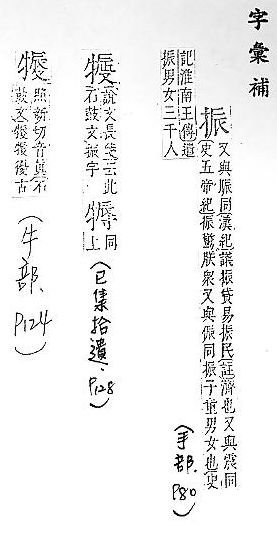 字彙補
振
又與賑同漢紀議振貸易振民註濟也又與震同
史五帝紀振驚朕衆又與侲同振子童男女也史
記淮南王傳遣
振男女三千人
(手部. P80)
說文長箋云此
石鼓文振字
同
上
(巳集拾遺. P128)
照新切音眞石
鼓文古
(牛部. P124)